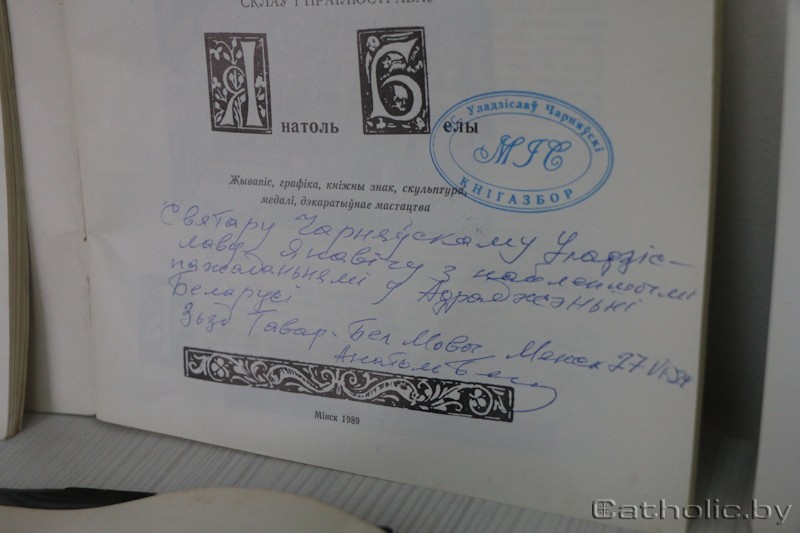 СКЛАЎ І ПРАІЛЮСТРАВАЎ
Анатоль Белы
Кс. Уладзіслаў Чарняўскі
МІС
КНІГАЗБОР
Жывапіс, графіка, кніжны знак, скульптура,
медалі, дэкаратыўнае мастацтва
Святару Чарняўскаму Уладзіс-
лаву Янавічу з найлепшымі
пажаданьнямі ў Адраджэньні
Беларусі
Зьезд Тавар. Бел Мовы Менск 27 VI 89
Анатоль Белы
Мінск 1989
Catholic.by